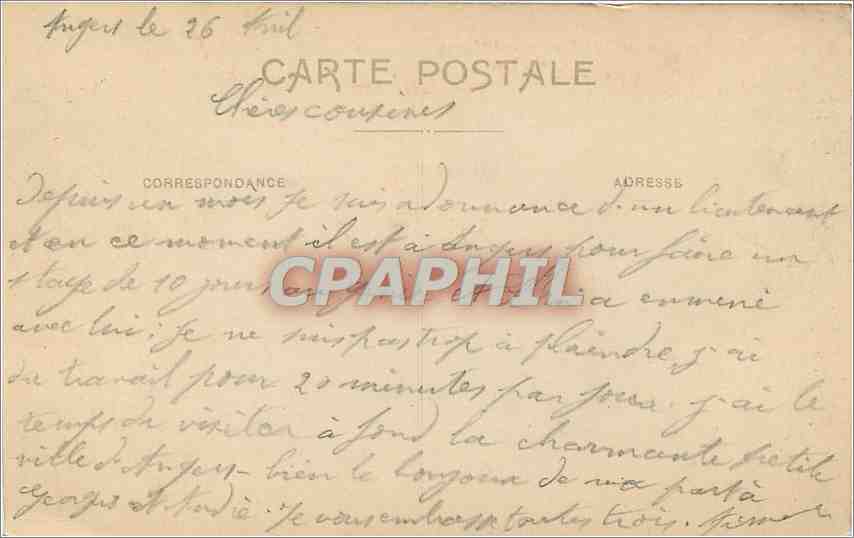 Angers le 26 Avril
CARTE POSTALE
Chères cousines
CORRESPONDANCE
ADRESSE
Depuis un mois je suis adonnance d'un lieutenant
et en ce moment il est à Angers pour faire un
stage de 10 jours au et il m'a emmené
CPAPHIL
avec lui; je ne suis pas trop à plaindre, j'ai
du travail pour 20 minutes par jour. j'ai le
temps de visiter à fond la charmante petite
ville d'Angers - bien le bonjour de ma part à
Georges et Je vous embrasse toutes trois.